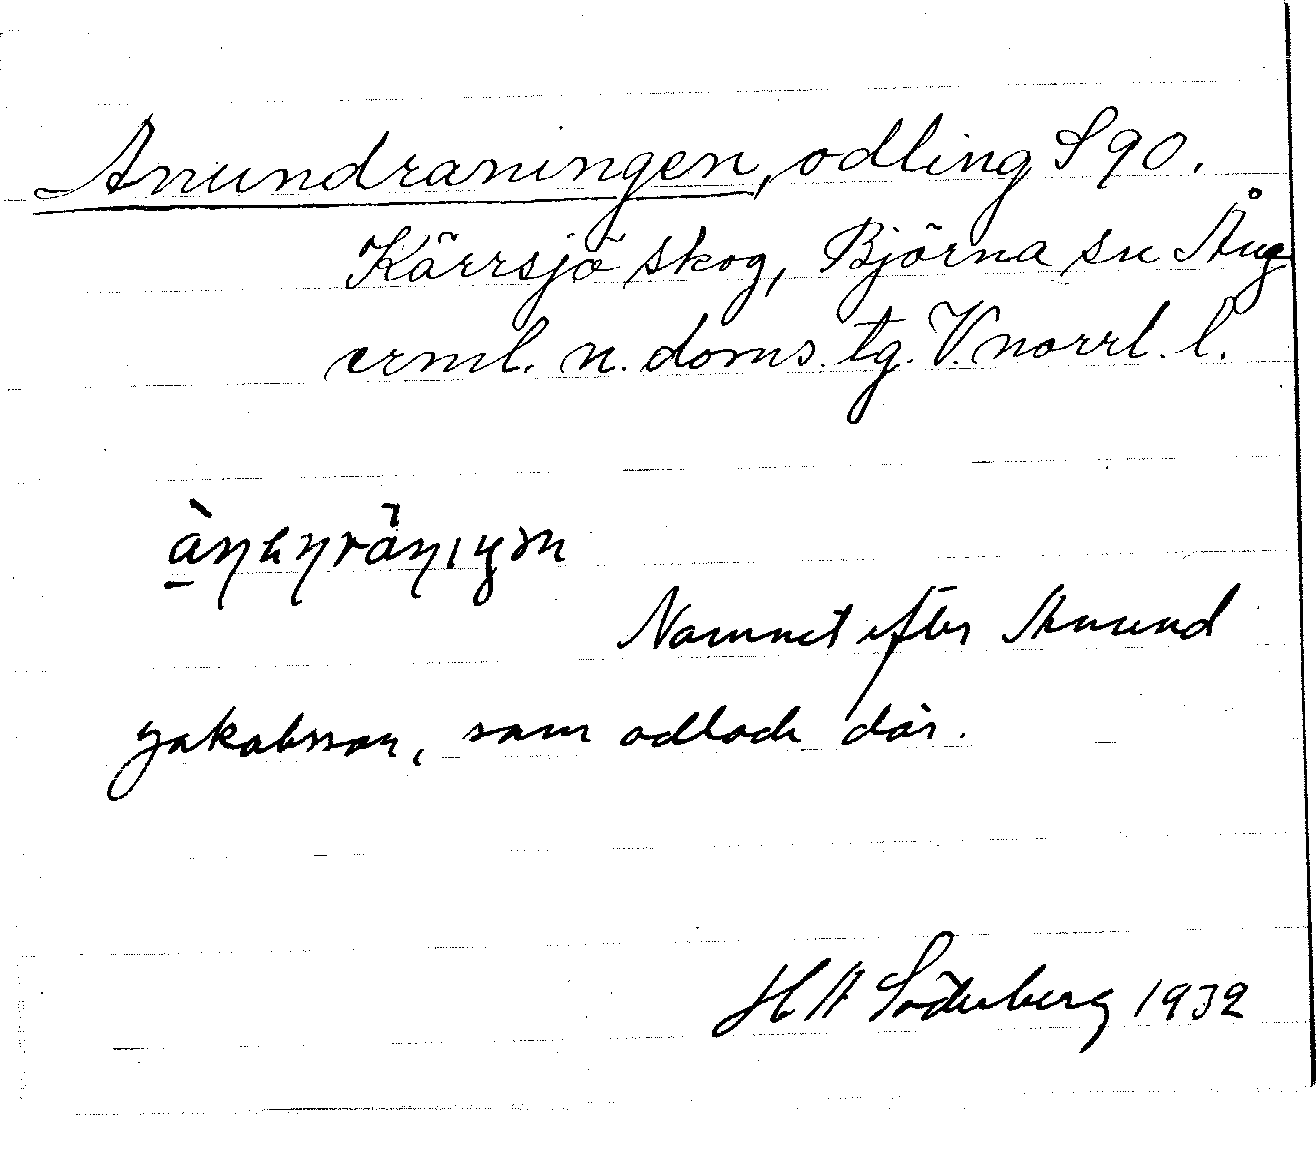 Anundraningen, odling S 90.
Kärrsjö skog, Björna sn Ång
erml. n. doms. tg. V. norrl. l.
Namnet efter Anund
Jakobsson, som odlade där.
H A Söderberg 1932